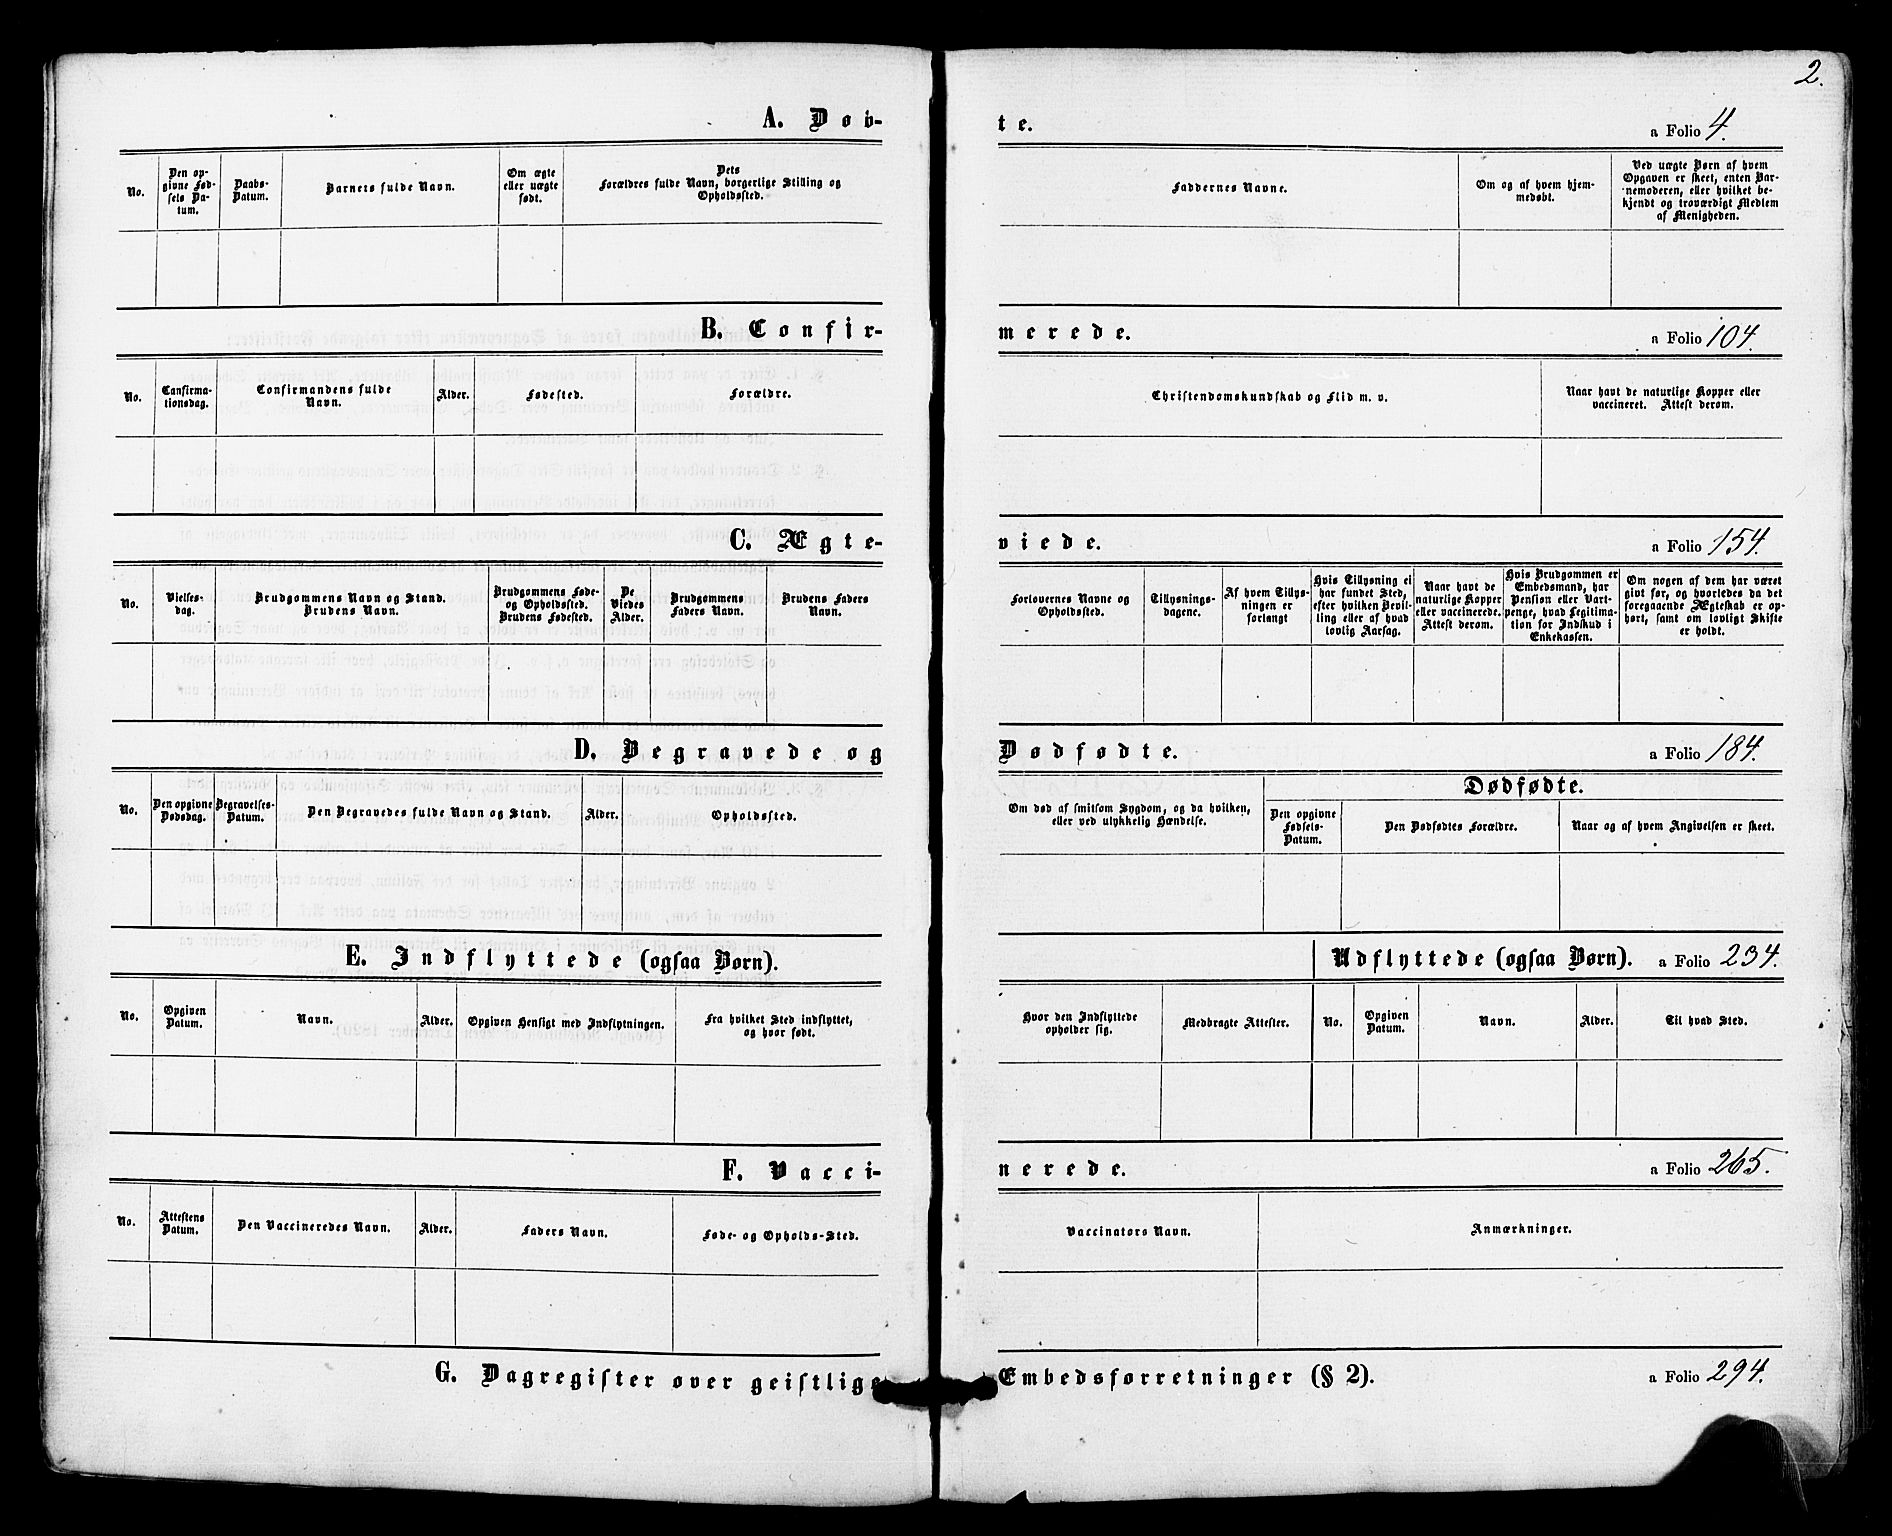 2.
A. Døb-te. a Folio 4.
No.
Den op-
givne Fød-
sels Da-
tum.
Daabs-
Datum.
Barnets fulde Navn.
Om ægte
eller uægte
født.
Dets
Forældres fulde Navn, borgerlige Stilling og
Opholdssted.
Faddernes Navne.
Om og af hvem hjem-
medøbt.
Ved uægte Børn af hvem
Opgaven er skeet, enten Bar-
nemoderen, eller hvilket be-
kjendt og troværdigt Medlem
af Menigheden.
B. Confir-merede. a Folio 104.
No.
Confirma-
tionsdag.
Confirmandens fulde
Navn.
Alder.
Fødested.
Forældre.
Christendomskundskab og Flid m. v.
Naar havt de naturlige Kopper eller
vaccineret. Attest derom.
C. Ægte-viede. a Folio 154.
No.
Vielses-
dag.
Brudgommens Navn og Stand.
Brudens Navn.
Brudgommens Føde-
og Opholdssted.
Brudens Fødested.
De
Viedes
Alder.
Brudgommens
Faders Navn.
Brudens Faders
Navn.
Forlovernes Navne og
Opholdssted.
Tillysnings-
dagene.
Af hvem Tillys-
ningen er
forlangt
Hvis Tillysning ei
har fundet Sted,
efter hvilken Bevil-
ling eller af hvad
lovlig Aarsag.
Naar havt de
naturlige Kopper
eller vaccinerede.
Attest derom.
Hvis Brudgommen er
Embedsmand, har
Pension eller Vart-
penge, hvad Legitima-
tion for Indskud i
Enkekassen.
Om nogen af dem har været
givt før, og hvorledes da det
foregaaende Ægteskab er op-
hørt, samt om lovligt Skifte
er holdt.
D. Begravede og Dødfødte. a Folio 184.
No.
Den opgivne
Dødsdag.
Begravelses-
Datum.
Den Begravedes fulde Navn og Stand.
Alder.
Opholdssted.
Om død af smitsom Sygdom, og da hvilken,
eller ved ulykkelig Hændelse.
Dødfødte.
Den opgivne
Fødsels-
Datum.
Den Dødfødtes Forældre.
Naar og af hvem Angivelsen er skeet.
E. Indflyttede (ogsaa Børn).
Udflyttede (ogsaa Børn). a Folio 234.
No.
Opgiven
Datum.
Navn.
Alder.
Opgiven Hensigt med Indflytningen.
Fra hvilket Sted indflyttet,
og hvor født.
Hvor den Indflyttede
opholder sig.
Medbragte Attester.
No.
Opgiven
Datum.
Navn.
Alder.
Til hvad Sted.
F. Vacci-nerede. a Folio 265.
No.
Attestens
Datum.
Den Vaccineredes Navn.
Alder.
Faders Navn.
Føde- og Opholds-Sted.
Vaccinators Navn.
Anmærkninger.
G. Dagregister over geistlige Embedsforretninger (§ 2). a Folio 294.